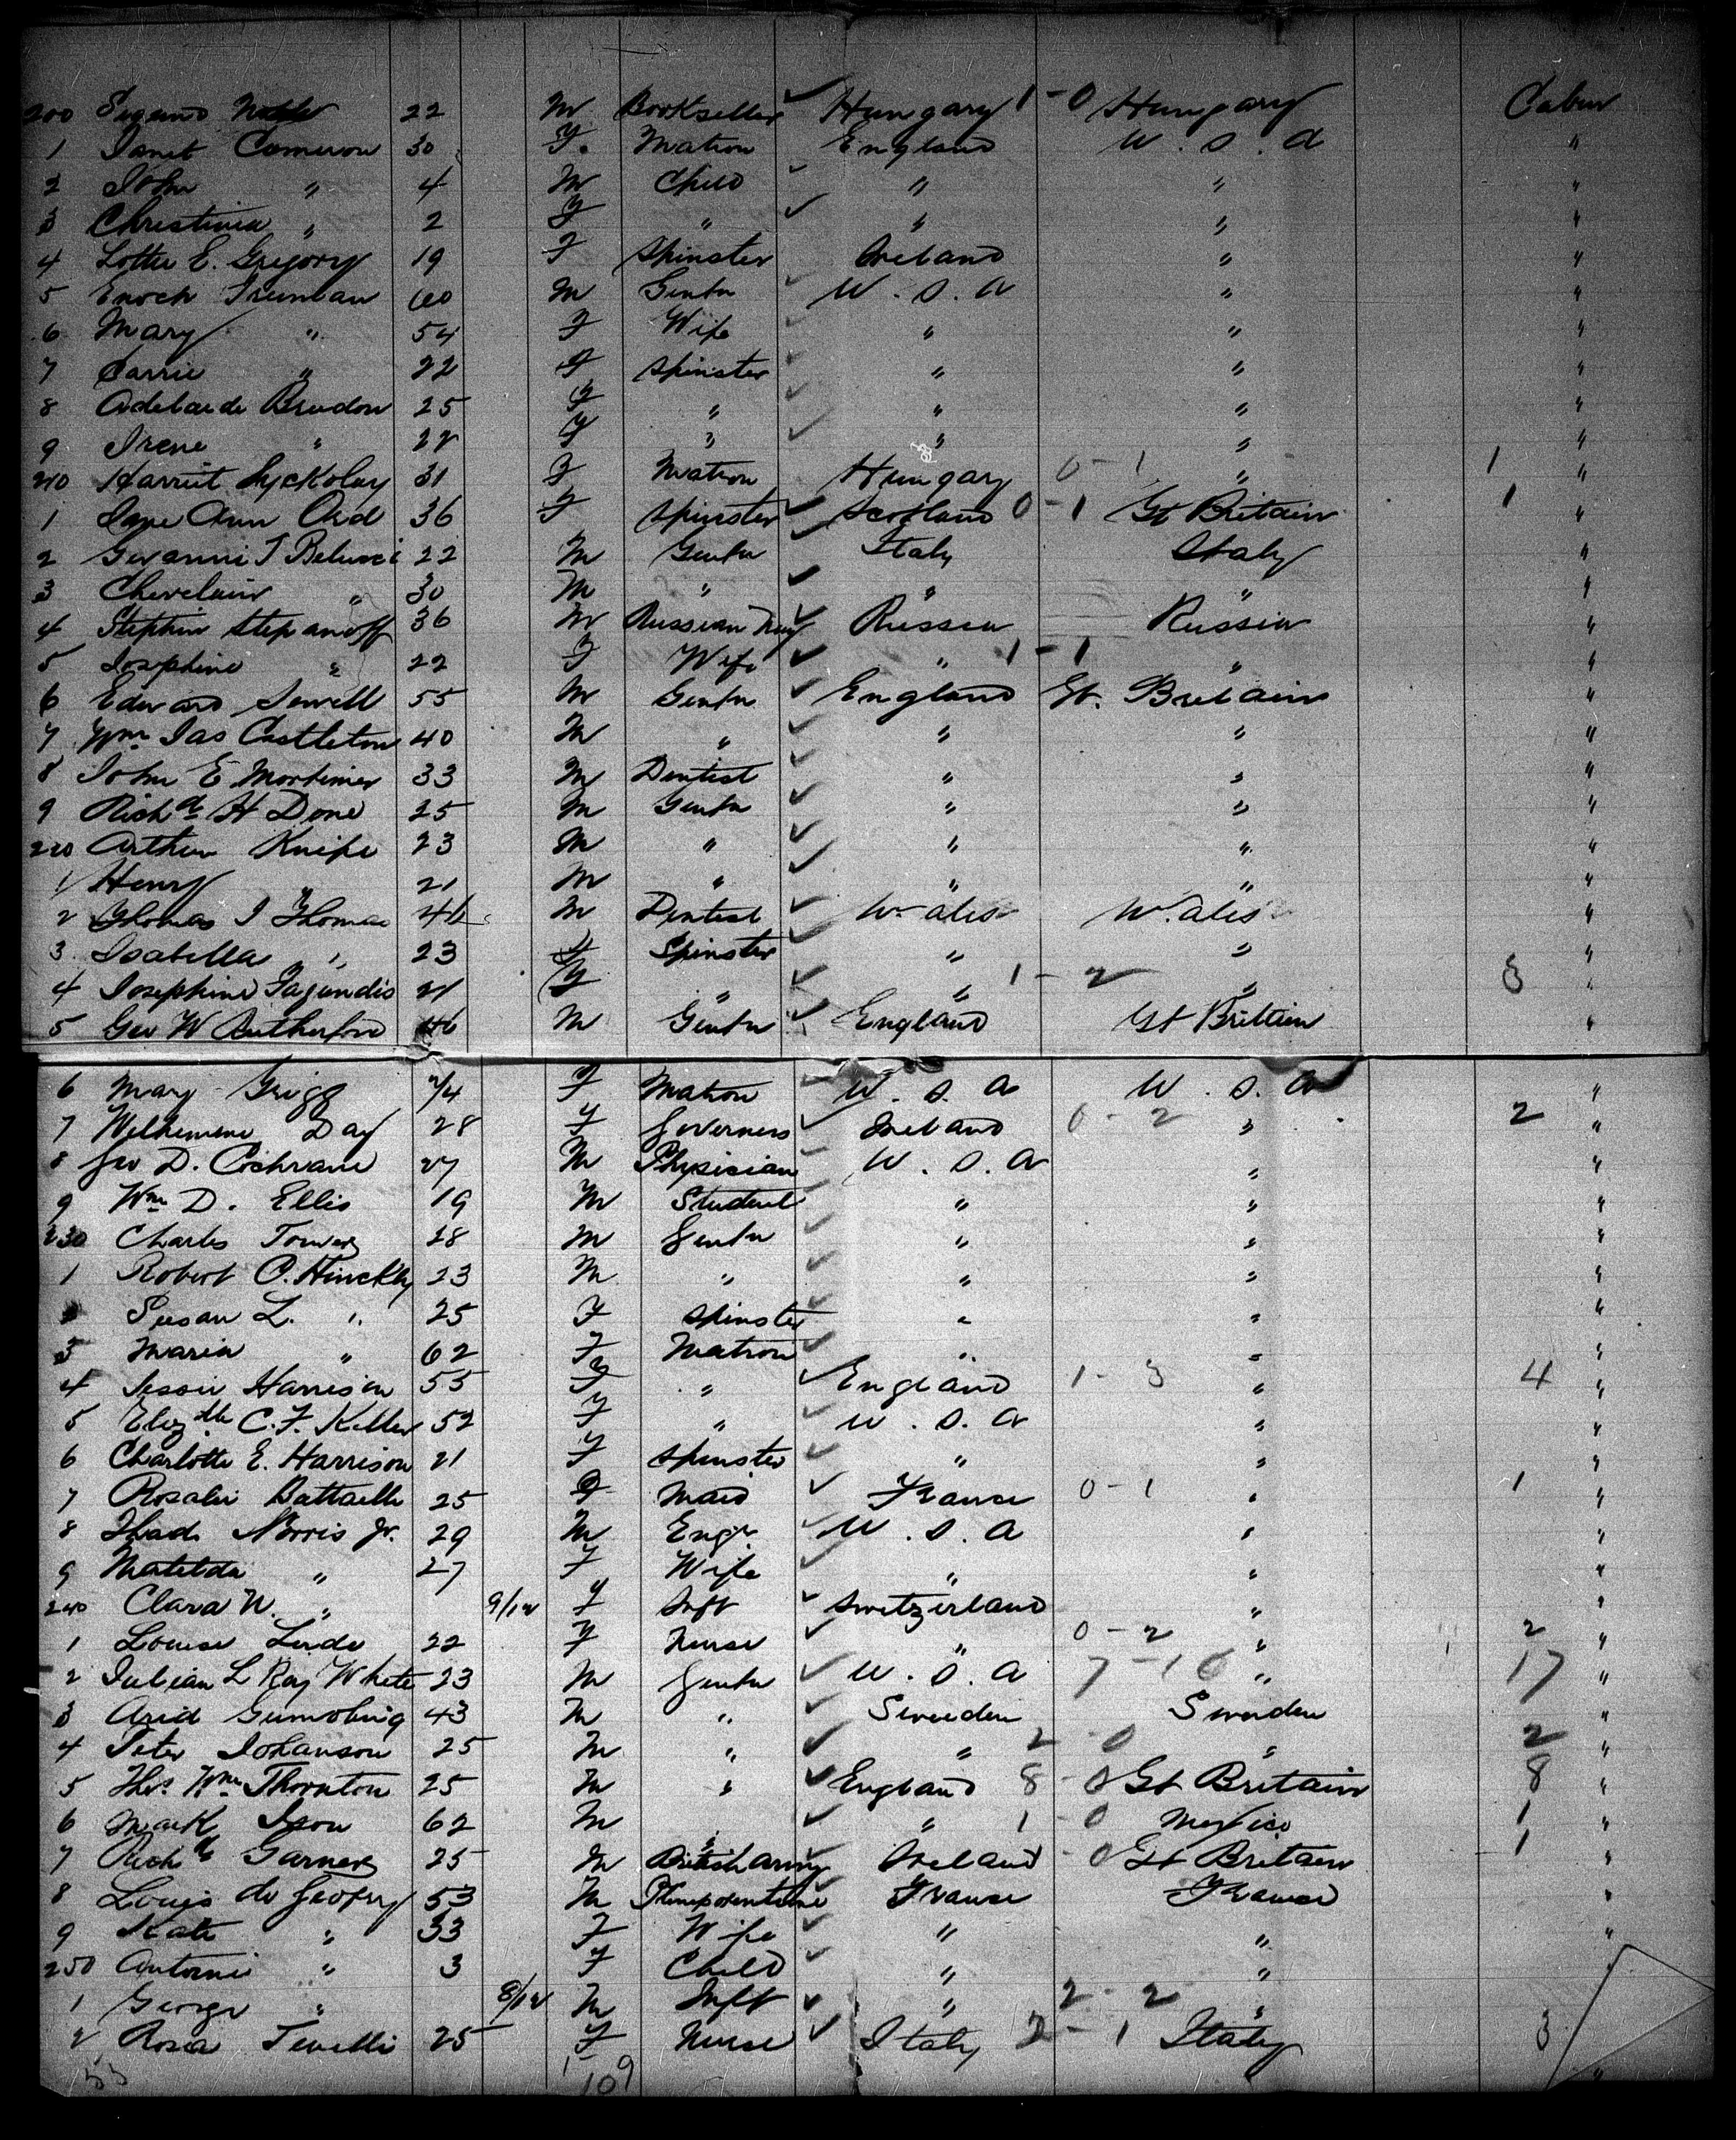 200 Sigund 22 M Bookseller Hungary 1 - 0 Hungary Cabin
1 Janet Cameron 30 F. Matron England U. S. A "
2 John " 4 M Child " " "
3 Christina " 2 F " " " "
4 Lottie E. Gregory 19 F Spinster Ireland " "
5 Enoch 60 M Gentn U. S. A " "
6 Mary " 54 F Wife " " "
7 Carrie " 22 F Spinster " " "
8 Adelaide 25 F " " " "
9 Irene " 22 F " " " "
210 Harriet 31 F Matron Hungary 0 - 1 " 1 "
1 Jane Ann Ord 36 F Spinster Scotland 0 - 1 Gt Britain 1 "
2 Giovanni J 22 M Gentn Italy Italy "
3 " 30 M " " " "
4 Stephen Stepanoff 36 M Russian Navy Russia Russia "
5 Josephine " 22 F Wife " 1 - 1 " "
6 Edward Sewell 55 M Gentn England Gt. Britain "
7 Wm Jas Castleton 40 M " " " "
8 John E Mortimer 33 M Dentist " " "
9 Richd H Done 25 M Gentn " " "
220 Arthur Knife 23 M " " " "
1 Henry " 21 M " " " "
2 Thomas J Thomas 46 M Dentist Wales Wales "
3 Isabella " 23 F Spinster " " "
4 Josephine Fagundis 21 F " " 1 - 2 " 3 "
5 Geo W Rutherford 46 M Gentn England Gt Brittain "
6 Mary Grigg 74 F Matron U. S. A U. S. A "
7 Wilhemene Day 28 F Governess Ireland 0 - 2 " 2 "
8 Geo D. Cochrane 27 M Physician U. S. A " "
9 Wm D. Ellis 19 M Student " " "
230 Charles Tower 28 M Gentn " " "
1 Robert C. Hinckly 23 M " " " "
Susan L. " 25 F Spinster " " "
3 Maria " 62 F Matron " " "
4 Jessie Harrison 55 F " England 1 - 3 " 4 "
5 Elizth C. F. Keller 52 F " U. S. A " "
6 Charlotte E. Harrison 21 F Spinster " " "
7 Rosalie Battaille 25 F Maid France 0 - 1 " 1 "
8 Thad. Norris Jr. 29 M Engr. U. S. A " "
9 Matilda " 27 F Wife " " "
240 Clara W. " 9/12 F Inft Switzerland " "
1 Louise Linde 22 F Nurse " 0 - 2 " 2 "
2 Julian L Roy White 23 M Gentn U. S. A 7 - 10 " 17 "
3 43 M " Sweiden Sweiden "
4 Peter Johanson 25 M " " 2 - 0 " 2 "
5 Thos Wm Thornton 25 M " England 8 - 0 Gt Britain 8 "
6 Mark Ison 62 M " " 1 - 0 Mexico 1 "
7 Richd Garner 25 M British Army Ireland - 0 Gt Britain 1 "
8 Louis de Geofry 53 M Plenipotentiare France France "
9 Kate " 33 F Wife " " "
250 Antoine " 3 F Child " " "
1 George " 8/12 M Inft " 2 - 2 " "
2 Rosa 25 F Nurse Italy 2 - 1 Italy 3 "
53 109